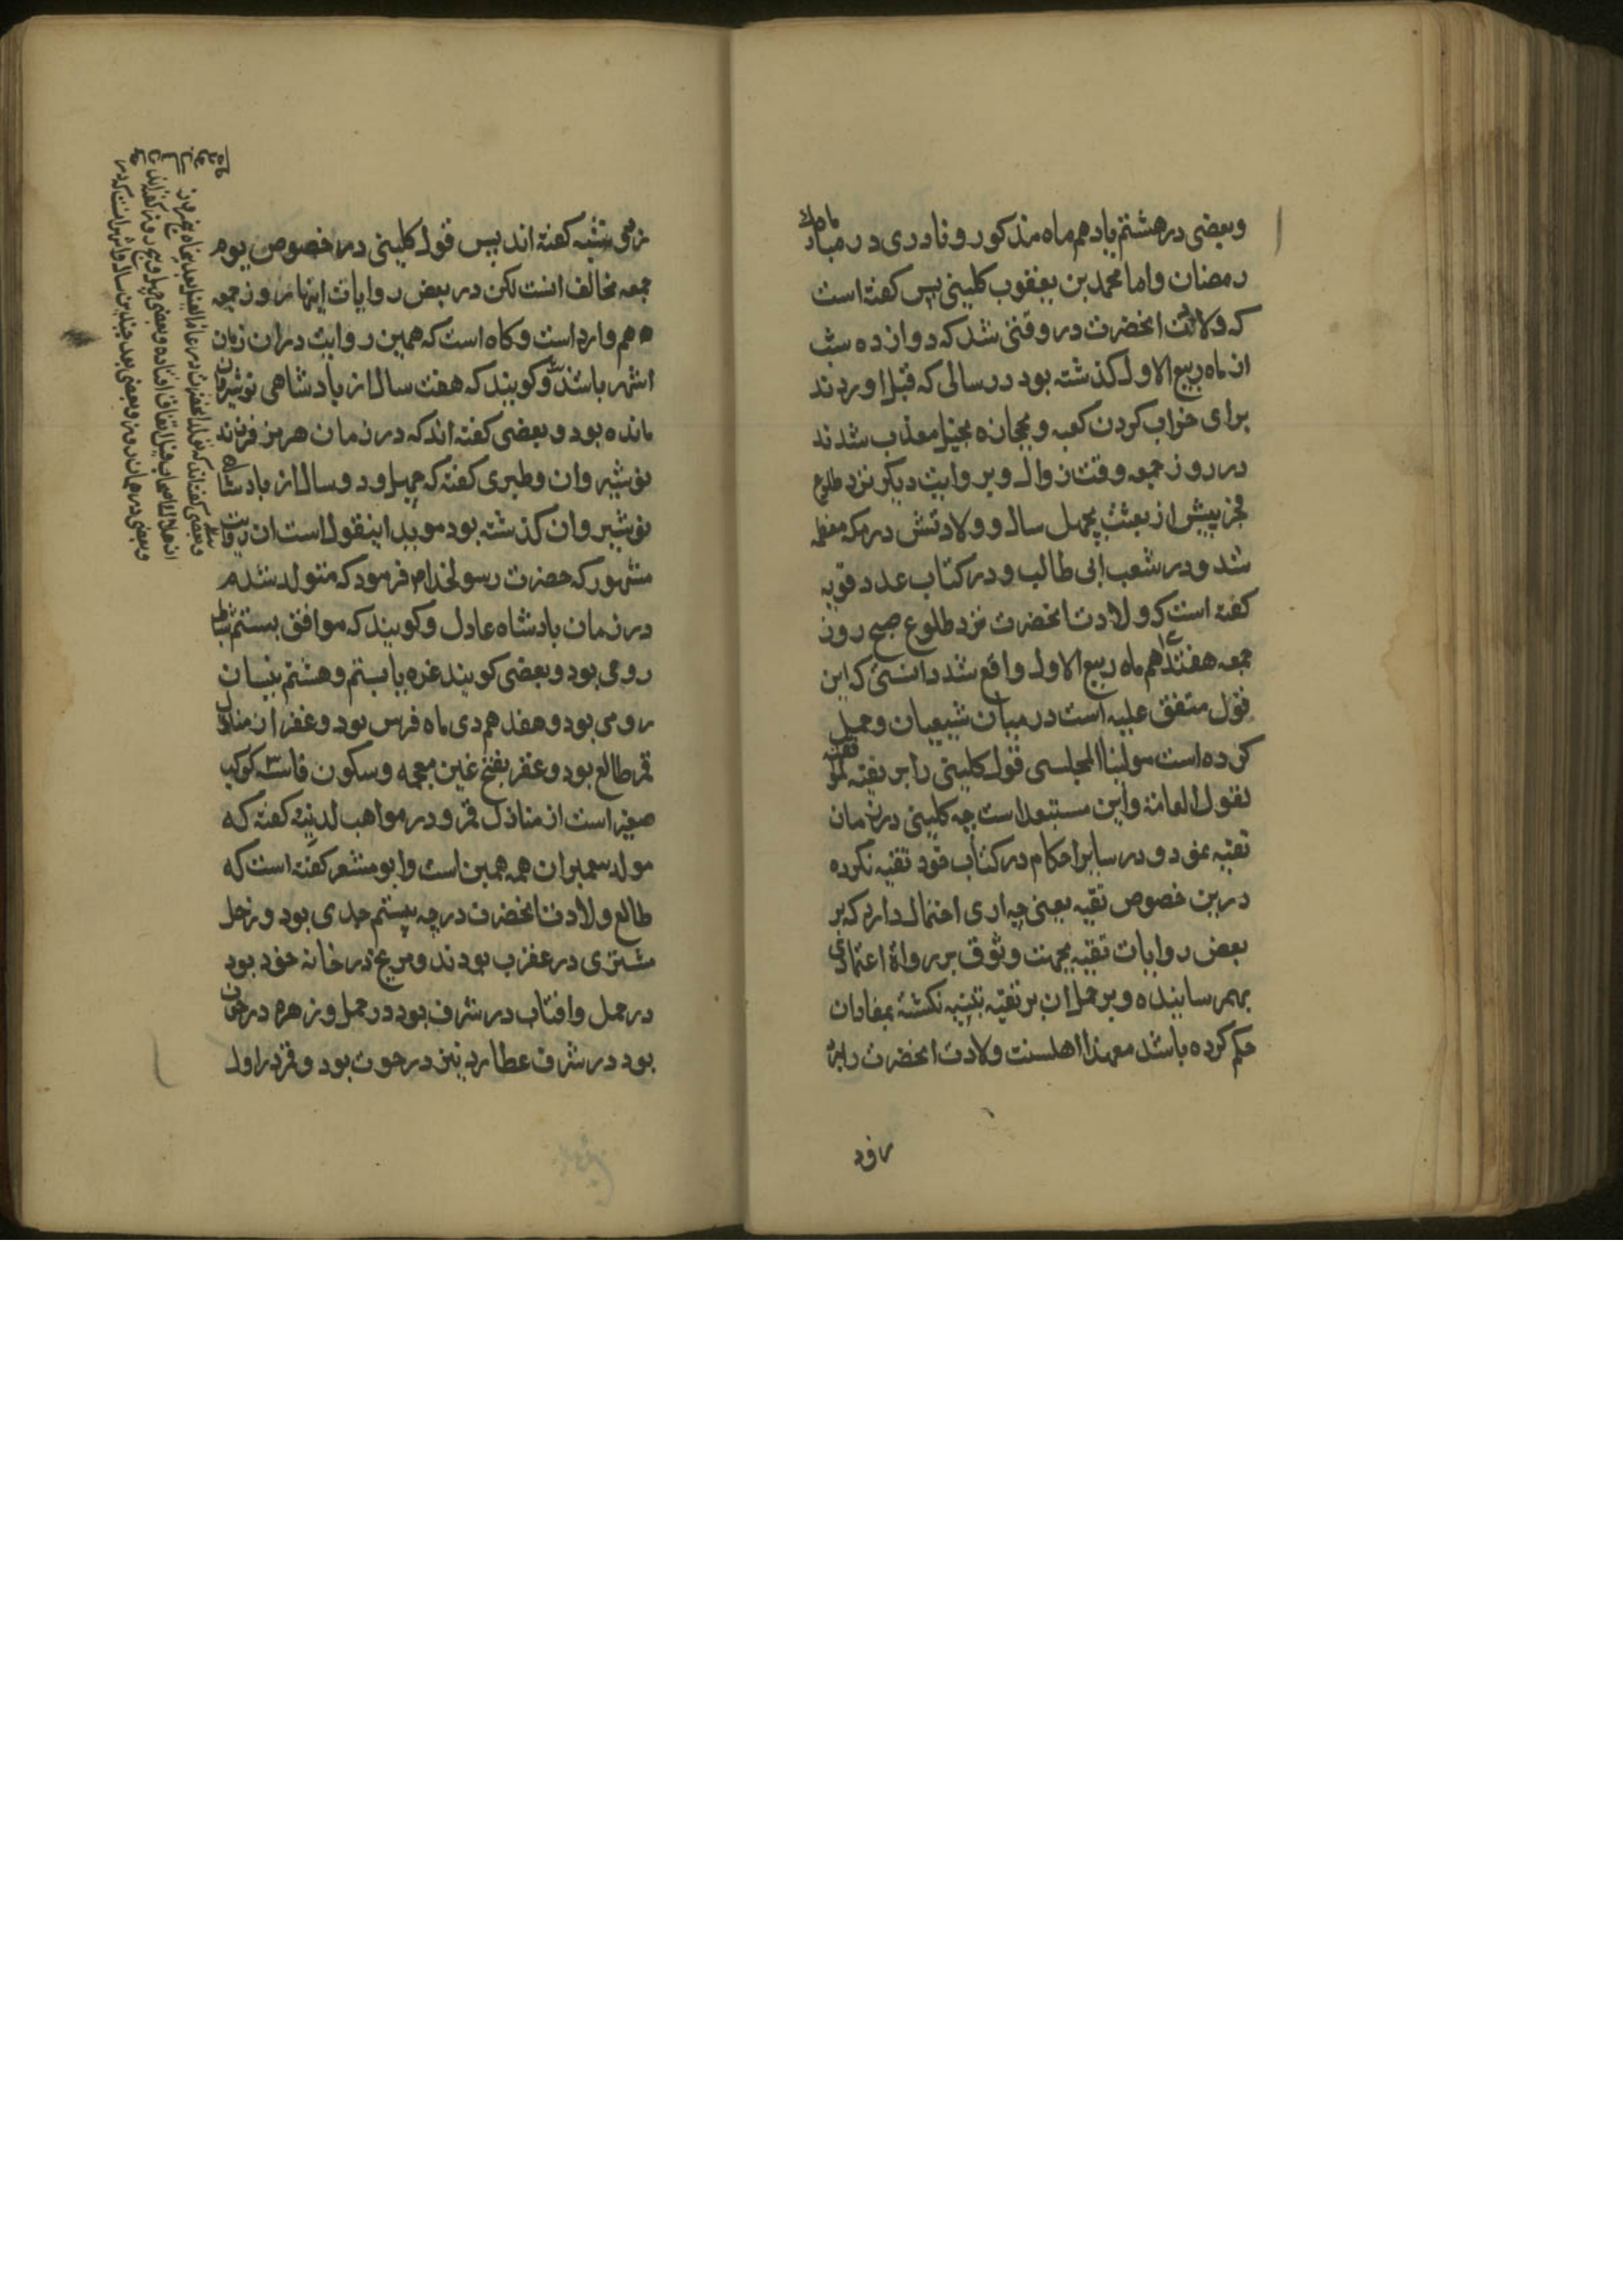 وبعضی در هشتم یا دهم ماه مذکور و نادری در ماه مبارک
رمضان واما محمد بن یعقوب کلینی پس کفته است
که ولادت انحضرت در وقتی شد که دوازده شب
از ماه ربیع الاول کذشته بود در سالی که فیل اوردند
برای خراب کردن کعبه و بحجاره سجیل معذب شدند
در روز جمعه وقت زوال و بروایت دیکر نزد طلوع
فجر پیش از بعثت بچهل سال و ولادتش در مکه معظمه
شد و در شعب ابی طالب و در کتاب عدد قویه
کفته است که ولادت انحضرت نزد طلوع صبح روز
جمعه هفتدهم ۱۷ ماه ربیع الاول واقع شد دانستی که این
قول متفق علیه است در میان شیعیان و حمل
کرده است مولینا المجلسی قول کلینی را بر تقیه
لقول العامة واین مستبعد است چه کلینی در زمان
تقیه نبود و در سایر احکام در کتاب خود تقیه نکرده
درین خصوص تقیه یعنی چه اری احتمال دارد که بر
بعض روایات تقیه بجهت وثوق بر رواة اعتمادی
بهم رسانیده و بر حمل ان بر تقیه تنبیه نکشته بمفاد ان
حکم کرده باشد معهذا اهلسنت ولادت انحضرت را در
روز
زمی شنبه کفته اند پس قول کلینی در خصوص یوم
جمعه مخالف است لکن در بعض روایات اینها روز جمعه
هم وارد است و کاه است که همین روایت در ان زمان
اشهر باشد و کویند که هفت سال از بادشاهی نوشیروان
مانده بود و بعضی کفته اند که در زمان هرمز فرزند
نوشیروان و طبری کفته که چهل و دو سال از بادشاهی
نوشیروان کذشته بود موید اینقول است ان روایت
مشهور که حضرت رسولخدام فرمود که متولد شدم
در زمان بادشاه عادل و کویند که موافق بیستم شباط
رومی بود و بعضی کویند غره یا بیستم و هشتم نیسان
رومی بود و هفدهم دی ماه فرس بود و غفر از منازل
قمر طالع بود و غفر بفتح غین معجمه و سکون فا سه ۳ کوکب
صغیر است از منازل قمر و در مواهب لدنیه کفته که
مولد پیغمبران همه همین است وابو معشر کفته است که
طالع ولادت انحضرت درجه بیستم جدی بود و زحل
مشتری در عقرب بودند و مریخ در خانه خود بود
در حمل و افتاب در شرف بود در حمل و زهره در حوت
بود در شرف عطارد نیز در حوت بود و قمر در اول
وبعضی کفته اند که تولد انحضرت در عام الفیل بعد پنجاه و پنج روز
از هلاک اصحاب فیل اتفاق افتاده و بعضی چهل و پنج روز کفته اند
وبعضی در همان روز و بعضی بعد چندین سال و اشهر انست که در
همان سال بوده ۱۲